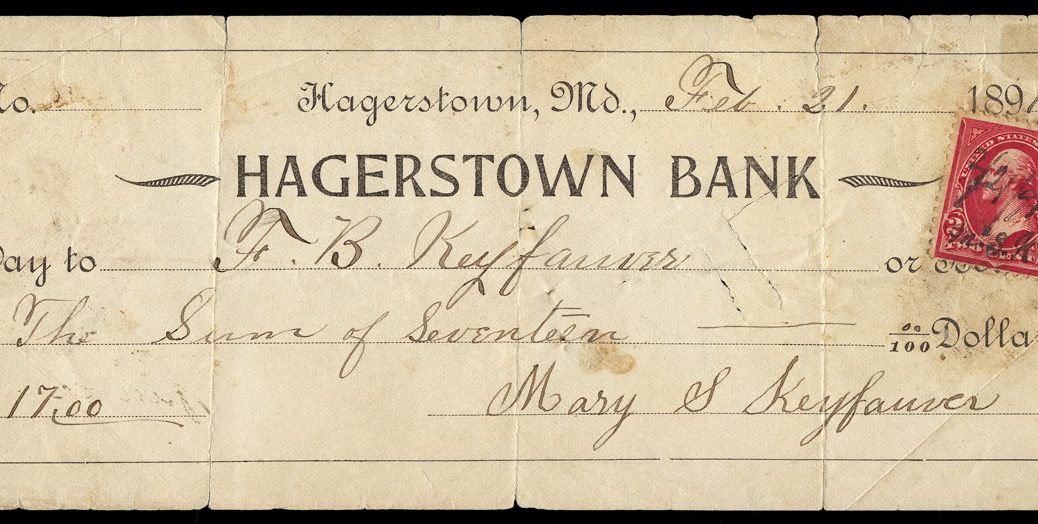 No.
Hagerstown, Md., Feb. 21. 189
HAGERSTOWN BANK
Pay to F. B. Keyfauver or
The Sum of Seventeen 00/100 Dolla
17.00
Mary S Keyfauver
UNITED STATES
2